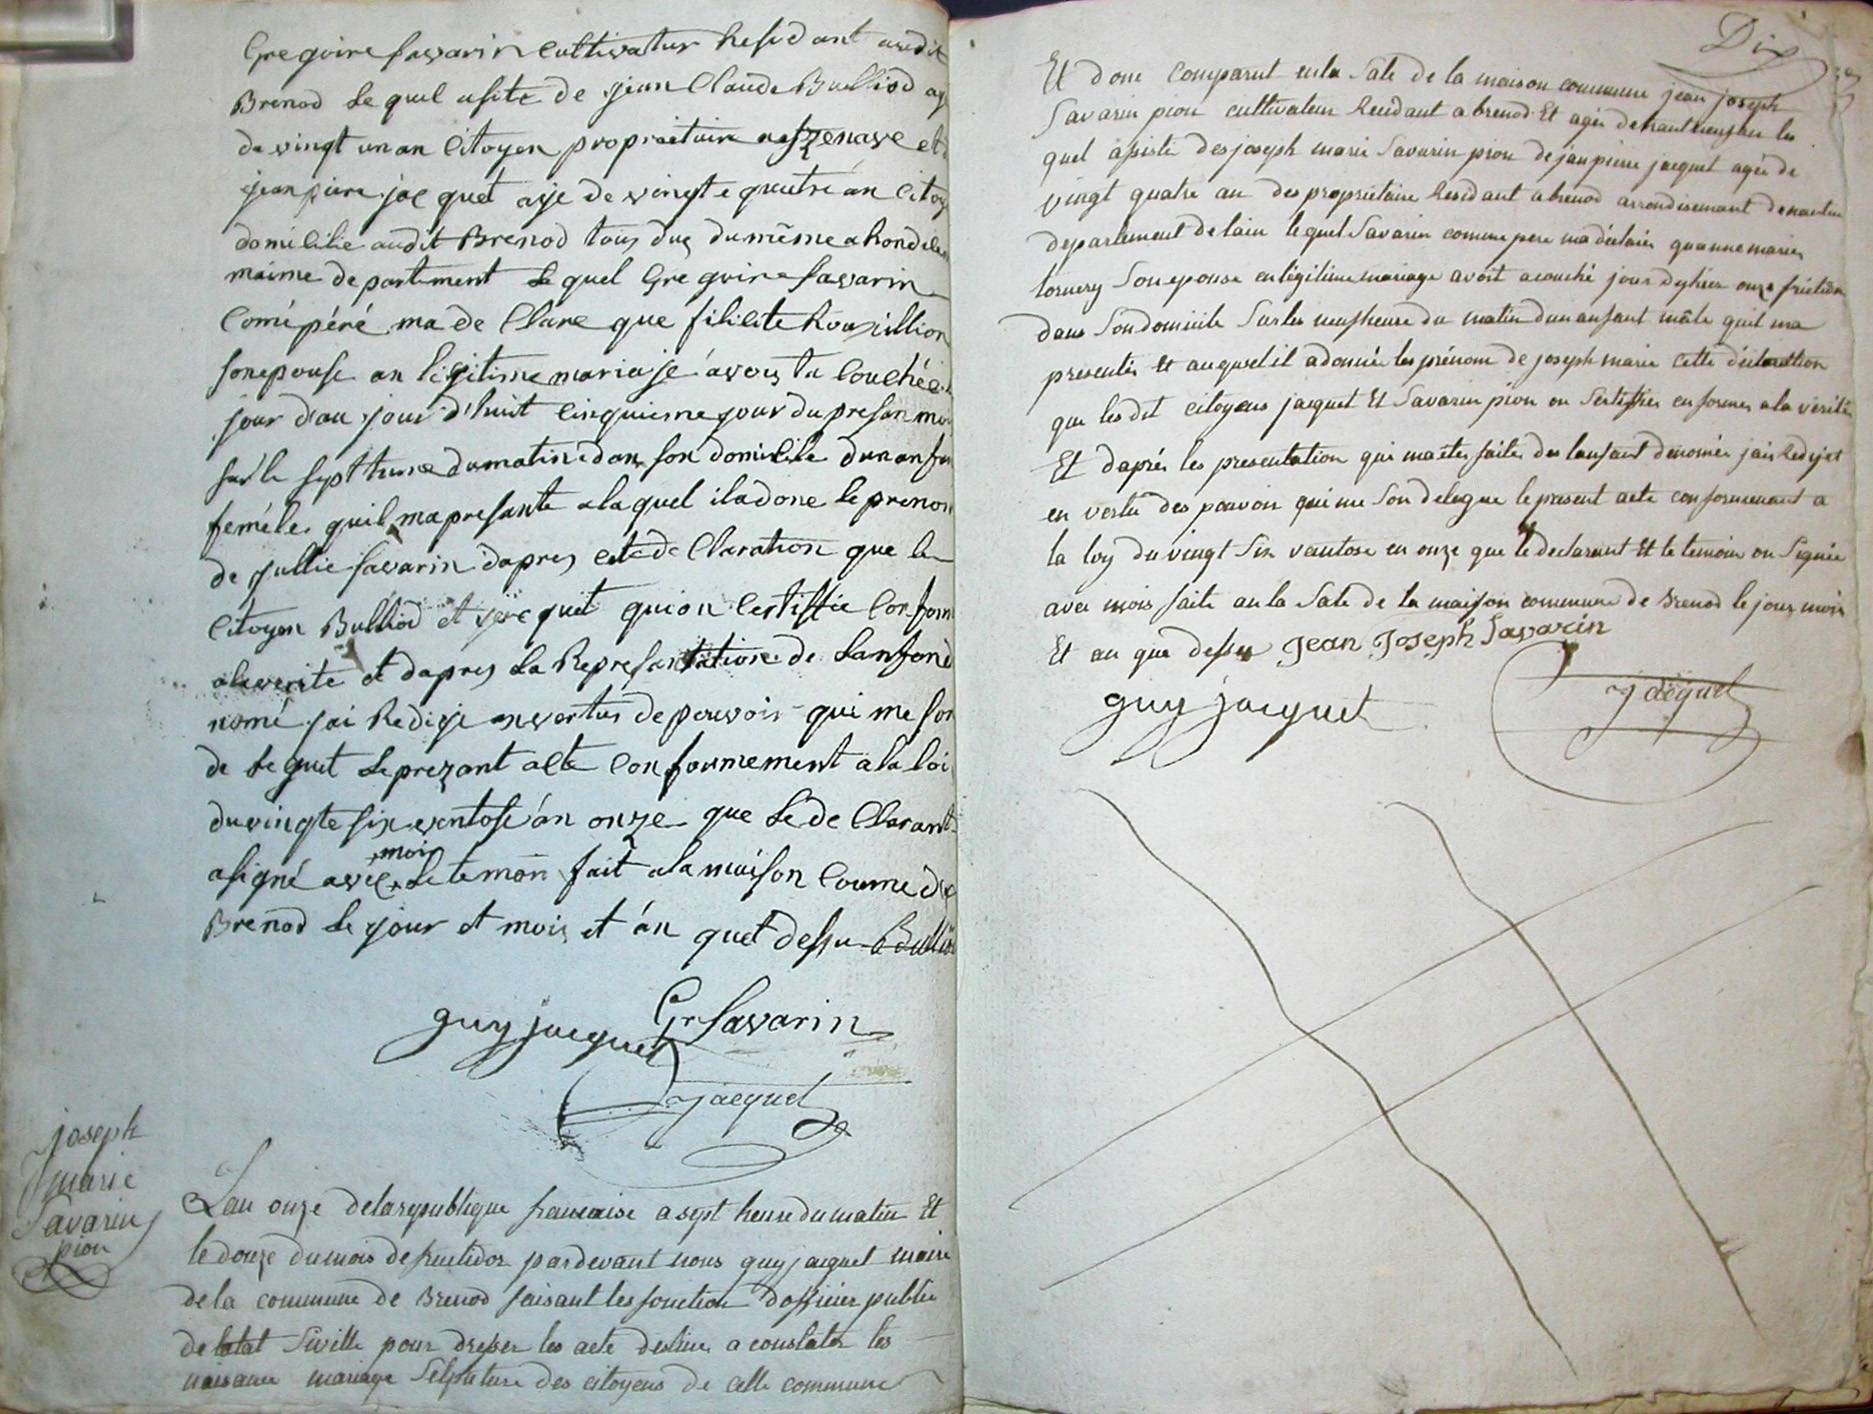 Gregoire Savarin Cultivatur Residant audit
Brenod Le quel asite de jean Claude Bulliod ag
de vingt un an Citoyen propriaitaire et
jean piere jacquet aje de vingte quatre án Citoy
domicilie audit Brenod tous du même
maime departement Le quel Gregoire Savarin
Comé péré ma de Clare que filicite
son epouse an légitime mariajé avoit
jour d'au jour d'huit Cinquieme jour du presan moi
sur le sept hure dumatin dan son domicile dunanfan
feméle quil ma presante alaquel iladone le prenom
de jullie Savarin dapres cete de Claration que le
Citoyen Bulliod et jacquet qui on Certiffié Conform
alaverite et dapres La Represantation de Lanfan de
nomé jai Redije anvertus depouvoir qui me son
de le guet Leprezant acte Conformement a la loi
duvingte six ventose án onze que Lé de Clarant
asigné avec moi Le temoin fait ala maison Comme de
Brenod Le jour et mois et án quet dessu Bulliod
guy jacquet Gr Savarin
jacquet
joseph
marie
Savarin
pion
Lan onze delarepublique francaise a sept heure du matin Et
le douze du mois de fructidor pardevant nous guy jacquet maire
de la commune de Brenod faisant les fonction dofficier public
de letat Siville pour dresser les acte destine a constater les
naisance mariage Sepulture des citoyens de cette commune
Dix
Et donc Comparut en la Sale de la maison commune jean joseph
Savarin pion cultivateur Residant a brenod Et agée de le
quel asisté des joseph marie Savarin pion de jean pierre jacquet agée de
vingt quatre an des propriétaire Residant a brenod arrondisement de nantua
departement de lain lequel Savarin comme pere ma déclarée quanne marie
tornery Son epouse en légitime mariage avoit acouché jour dyhier onze frictidor
dans Son domicile Sur les neufheure du matin dun anfant mâle quil ma
presentée Et auquel il a donnée les prénom de joseph marie cette déclaration
que les dit citoyens jacquet Et Savarin pion on Sertiffiée en forme a la vérité
Et daprés les presentation qui ma etée faite des lanfant denomée jais Redijet
en vertu des pouvoir qui me Son delegue le present acte conformemant a
la loy du vingt Six vantose en onze que le declarant Et le temoin on Signée
avec mois faite an la Sale de la maison commune de Brenod le jour mois
Et an que dessu Jean Joseph Savarin
guy jacquet jacquet